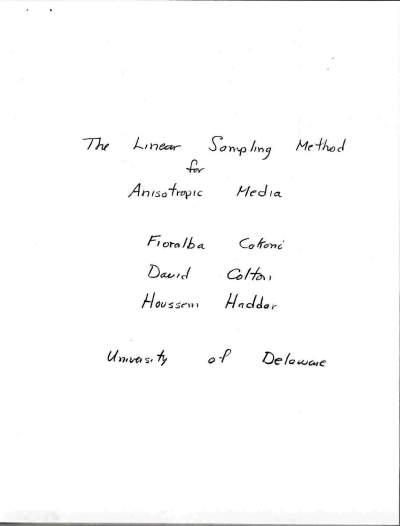 The Linear Sampling Method
for
Anisotropic Media
Fioralba Cakoni
David Colton
Houssem Haddar
University of Delaware